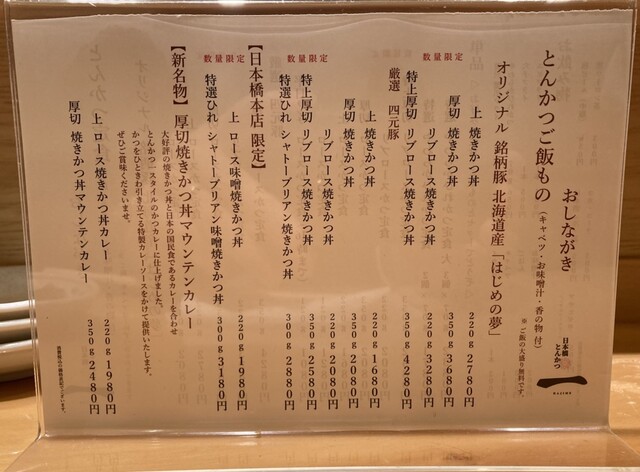 おしながき
とんかつご飯もの（キャベツ・お味噌汁・香の物 付）
※ ご飯の大盛り無料です。
日本橋
とんかつ
一
HAJIME
オリジナル 銘柄豚 北海道産「はじめの夢」
上 焼きかつ丼 220g 2780円
厚切 焼きかつ丼 350g 3680円
リブロース焼きかつ丼 220g 3280円
数量限定 特上厚切 リブロース焼きかつ丼 350g 4280円
厳選 四元豚
上 焼きかつ丼 220g 1680円
厚切 焼きかつ丼 350g 2080円
リブロース焼きかつ丼 220g 2080円
数量限定 特上厚切 リブロース焼きかつ丼 350g 2580円
特選ひれ シャトーブリアン焼きかつ丼 300g 2880円
【日本橋本店 限定】
上 ロース味噌焼きかつ丼 220g 1980円
数量限定 特選ひれ シャトーブリアン味噌焼きかつ丼 300g 3180円
【新名物】 厚切焼きかつ丼マウンテンカレー
大好評の焼きかつ丼と日本の国民食であるカレーを合わせ
とんかつ一スタイルのかつカレーに仕上げました。
かつをひときわ引き立てる特製カレーソースをかけて提供いたします。
ぜひご賞味くださいませ。
上 ロース焼きかつ丼カレー 220g 1980円
厚切 焼きかつ丼マウンテンカレー 350g 2480円